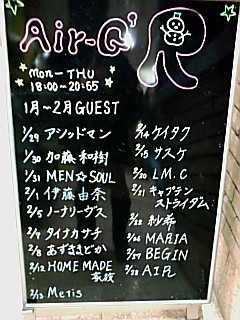 Air-G'
R
Mon-THU
18:00~20:55
1月~2月 GUEST
1/29 アシッドマン
1/30 加藤和樹
1/31 MEN☆SOUL
2/1 伊藤由奈
2/5 ノーナリーヴス
2/7 タイナカサチ
2/8 あずまどか
2/12 HOME MADE 家族
2/13 Metis
2/14 ケイタク
2/15 サスケ
2/20 L.M.C
2/21 キャプテンストライダム
2/22 紗希
2/26 MARIA
2/27 BEGIN
2/28